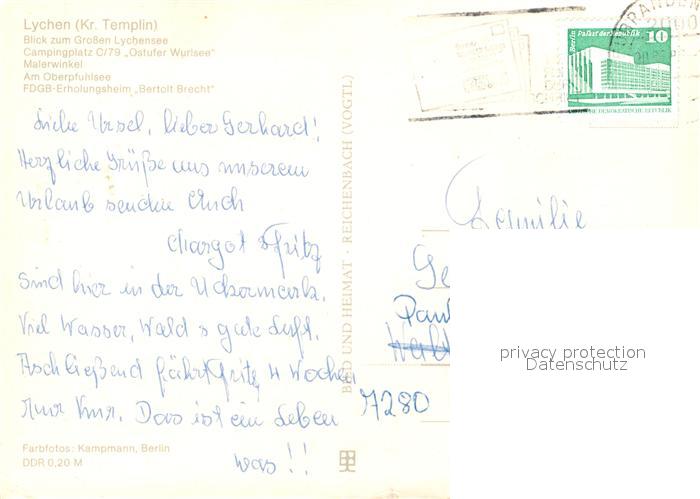 Lychen (Kr. Templin)
Blick zum Großen Lychensee
Campingplatz C/79 „Ostufer Wurlsee"
Malerwinkel
Am Oberpfuhlsee
FDGB-Erholungsheim „Bertolt Brecht"
Liebe Ursel, lieber Gerhard!
Herzliche Grüße aus unserem
Urlaub senden Euch
Margot + Fritz
Sind hier in der Uckermark.
Viel Wasser, Wald + gute Luft.
Anschließend fährt Fritz 4 Wochen
zur Kur. Das ist ein Leben
was!!
Farbfotos: Kampmann, Berlin
DDR 0,20 M
BILD UND HEIMAT · REICHENBACH (VOGTL)
BRANDEN
Berlin Palast der Republik
10
DEUTSCHE DEMOKRATISCHE REPUBLIK
Familie
Ge
Pau
7280
privacy protection
Datenschutz